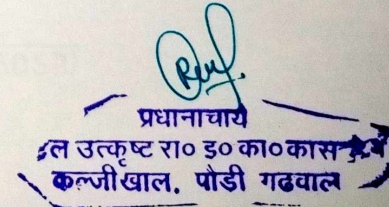 प्रधानाचार्य
उत्कृष्ट रा० इ० का०
कल्जीखाल, पौडी गढवाल